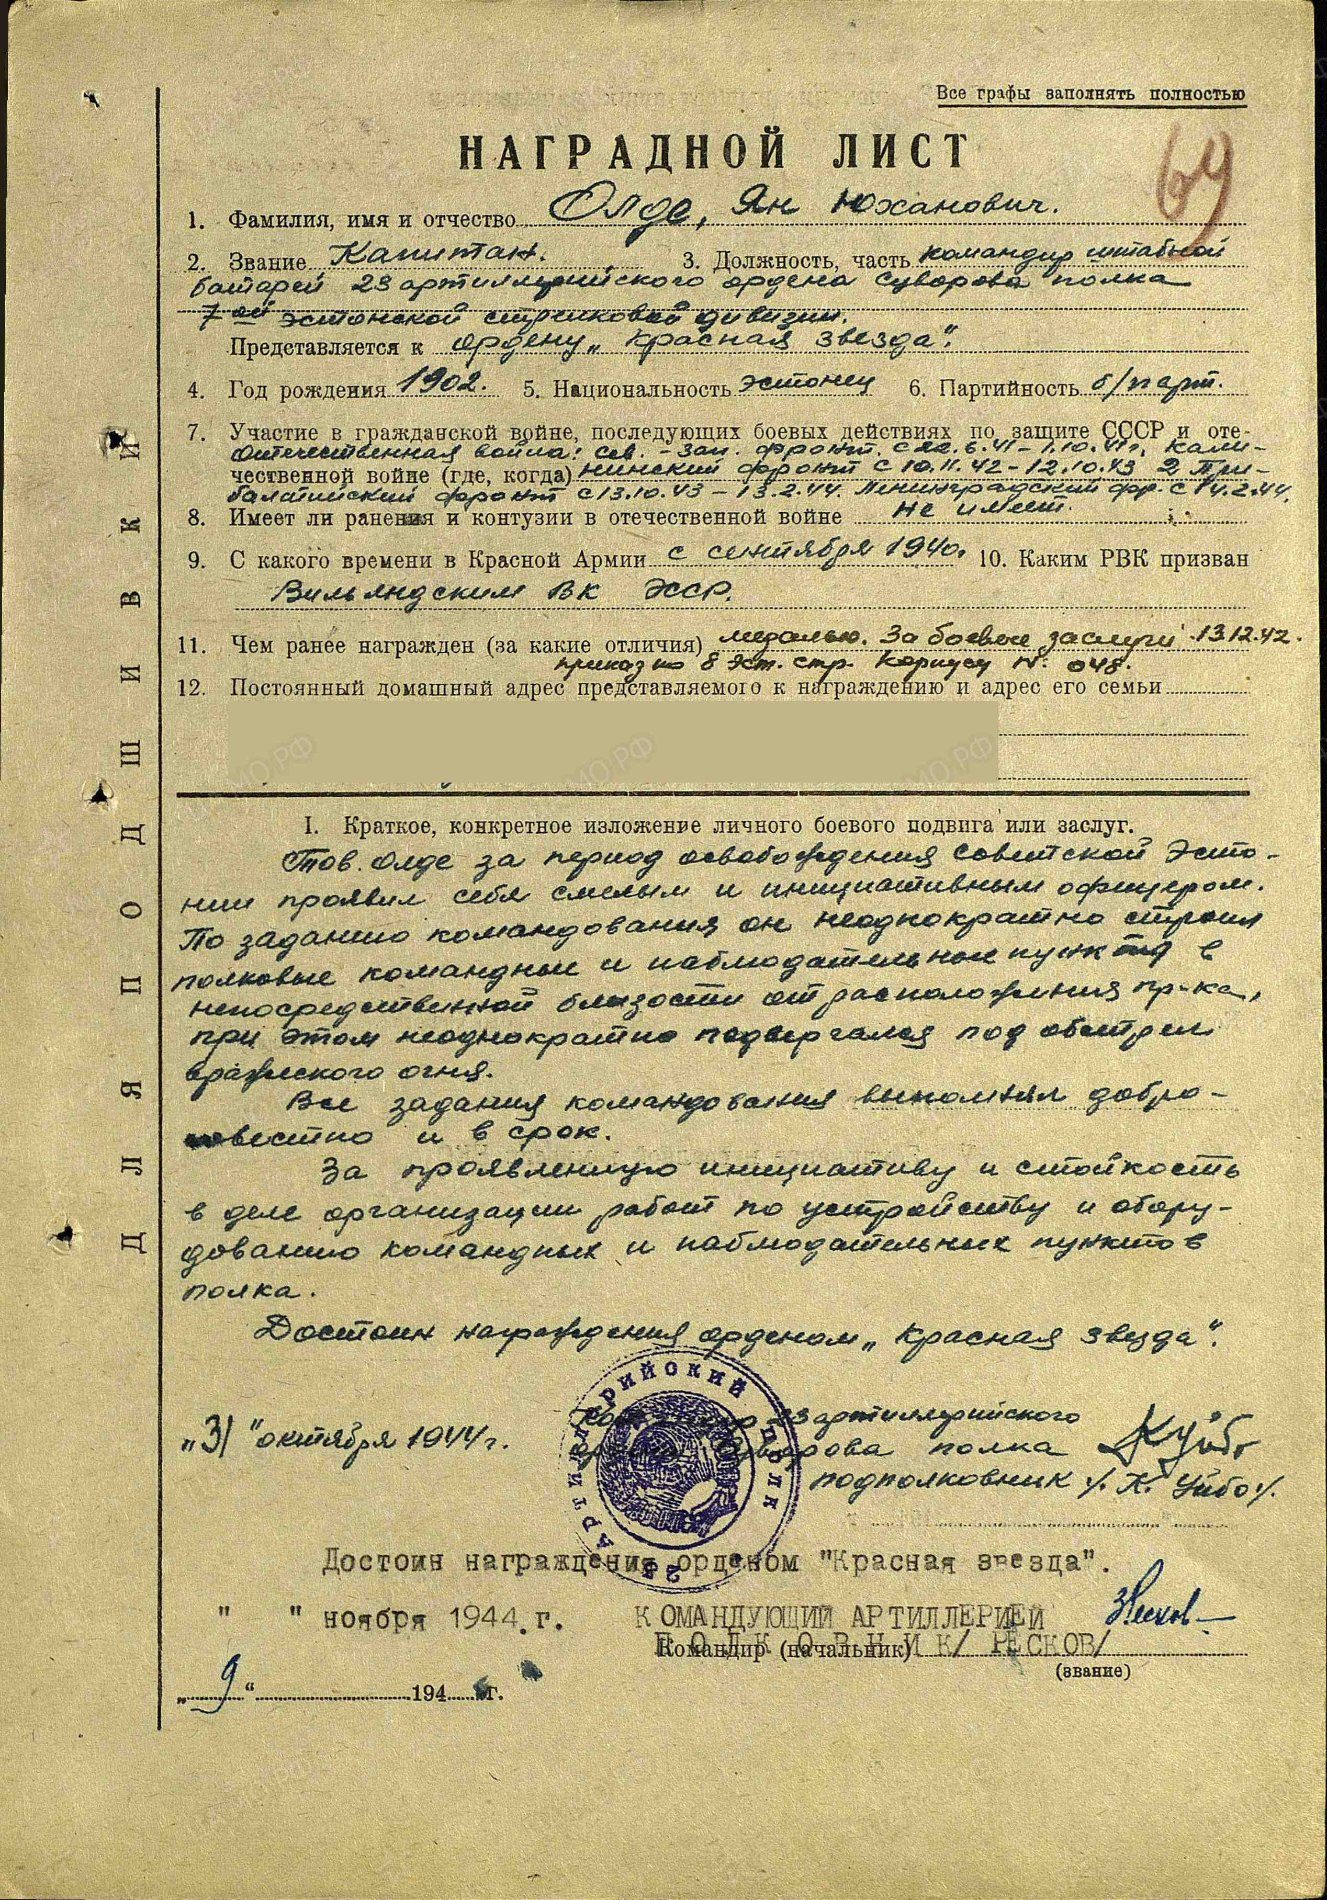 Все графы заполнять полностью
НАГРАДНОЙ ЛИСТ
69
1. Фамилия, имя и отчество Олде, Ян Юханович.
2. Звание Капитан. 3. Должность, часть командир штабной
батареи 23 артиллерийского ордена Суворова полка
7ой эстонской стрелковой дивизии.
Представляется к ордену „Красная звезда".
4. Год рождения 1902. 5. Национальность эстонец 6. Партийность б/парт.
7. Участие в гражданской войне, последующих боевых действиях по защите СССР и оте-
Отечественная война: Сев.-Зап. фронт. с 22.6.41-1.10.41г. Кали-
чественной войне (где, когда) нинский фронт с 10.11.42-12.10.43 2 При-
балтийский фронт с 13.10.43-13.2.44. Ленинградский фр. с 14.2.44.
8. Имеет ли ранения и контузии в отечественной войне не имеет.
9. С какого времени в Красной Армии с сентября 1940. 10. Каким РВК призван
Вильяндским ВК ЭССР.
11. Чем ранее награжден (за какие отличия) медалью. За боевые заслуги 13.12.42.
приказ по 8 эст. стр. корпусу №. 048.
12. Постоянный домашный адрес представляемого к награждению и адрес его семьи
I. Краткое, конкретное изложение личного боевого подвига или заслуг.
Тов. Олде за период освобождения Советской Эсто-
нии проявил себя смелым и инициативным офицером.
По заданию командования он неоднократно строил
полковые командные и наблюдательные пункты в
непосредственной близости от расположения пр-ка,
при этом неоднократно подвергался под обстрел
вражеского огня.
Все задания командования выполнял добро-
совестно и в срок.
За проявленную инициативу и стойкость
в деле организации работ по устройству и обору-
дованию командных и наблюдательных пунктов
полка.
Достоин награждения орденом „Красная звезда".
„31" октября 1944г. Командир 23 артиллерийского
ордена Суворова полка
подполковник /. К. Уйбо /.
23 АРТИЛЛЕРИЙСКИЙ ПОЛК
Достоин награждения орденом "Красная звезда".
" " ноября 1944 г. КОМАНДУЮЩИЙ АРТИЛЛЕРИЕЙ
ПОЛКОВНИК / РЕСКОВ/
Командир (начальник)
(звание)
„ 9 " 194 г.
ДЛЯ ПОДШИВКИ